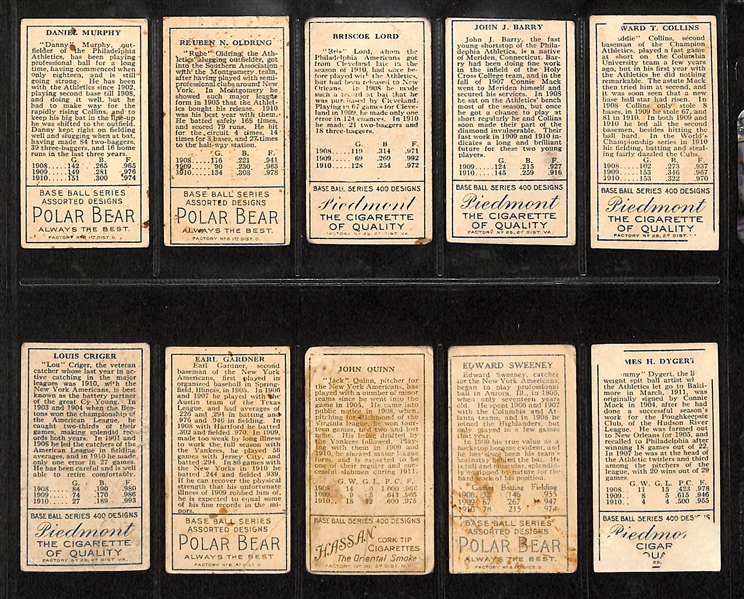 DANIEL MURPHY
"Danny" Murphy, out-
fielder of the Philadelphia
Athletics, has been playing
professional ball for a long
time, having commenced when
only eighteen, and is still
going strong. He has been
with the Athletics since 1902,
playing second base till 1908,
and doing it well, but he
had to make way for the
rapidly rising Collins, and to
keep his big bat in the
he was shifted to the outfield.
Danny kept right on fielding
well and slugging when at bat,
having made 84 two-baggers,
39 three-baggers, and 16 home
runs in the last three years.
G. B. F.
1908 142 265 .965
1909 149 .281 .976
1910 151 .300 .974
BASE BALL SERIES
ASSORTED DESIGNS
POLAR BEAR
ALWAYS THE BEST.
FACTORY Nº 6 1ST DIST. O.
REUBEN N. OLDRING
"Rube" Oldring, the Ath-
letics' slugging outfielder, got
into the Southern Association
with the Montgomery team,
after having played with semi-
professional clubs around New
York. In Montgomery he
showed such major league
form in 1905 that the Athlet-
ics bought his release. 1910
was his best year with them.
He batted safely 168 times,
and scored 79 runs. He hit
for the circuit 4 times, 14
times for 3 bases, and 27 times
to the half-way station.
G. B. F.
1908 116 .221 .941
1909 90 .230 .963
1910 134 .308 .978
BASE BALL SERIES
ASSORTED DESIGNS
POLAR BEAR
ALWAYS THE BEST.
FACTORY Nº 6 1ST DIST. O.
BRISCOE LORD
"Bris" Lord, whom the
Philadelphia Americans got
from Cleveland late in the
season of 1910, had once be-
fore played with the Athletics,
but had been released to New
Orleans. In 1908 he made
such a record at bat that he
was purchased by Cleveland.
Playing in 67 games for Cleve-
land in 1909, he made only one
error in 124 chances. In 1910
he made 21 two-baggers and
18 three-baggers.
G. B. F.
1908 119 .314 .971
1909 69 .260 .992
1910 128 .254 .972
BASE BALL SERIES 400 DESIGNS
Piedmont
THE CIGARETTE
OF QUALITY
FACTORY Nº 25, 2ª DIST. VA.
JOHN J. BARRY
John J. Barry, the fast
young shortstop of the Phila-
delphia Athletics, is a native
of Meriden, Connecticut. Barry
had been doing fine work
in the infield of the Holy
Cross College team, and in
the fall of 1907 Connie Mack
went to Meriden himself and
secured his services. In 1908
he sat on the Athletics' bench
most of the season, but once
he got a chance to play at
short regularly he and Collins
soon made that part of the
diamond invulnerable. Their
fast work in 1909 and 1910 in-
dicates a long and brilliant
future for these two young
players.
G. B. F.
1909 124 .215 .927
1910 145 .259 .916
BASE BALL SERIES 400 DESIGNS
Piedmont
THE CIGARETTE
OF QUALITY
FACTORY Nº 25, 2ª DIST. VA.
WARD T. COLLINS
ddie" Collins, second
baseman of the Champion
Athletics, played a fast game
at short on the Columbia
University team a few years
ago, but in his first year with
the Athletics he did nothing
remarkable. The astute Mack
then tried him at second, and
it was soon seen that a new
base ball star had risen. In
1908 Collins only stole 8
bases, in 1909 he stole 67, and
81 in 1910. In both 1909 and
1910 he led all the second
basemen, besides hitting the
ball hard. In the World's
Championship series in 1910
his fielding, batting and steal-
ing fairly dazzled the Cubs.
G. B. F.
1908 102 .273 .937
1909 153 .346 .967
1910 153 .322 .970
BASE BALL SERIES 400 DESIGNS
Piedmont
THE CIGARETTE
OF QUALITY
FACTORY Nº 25, 2ª DIST. VA.
LOUIS CRIGER
"Lou" Criger, the veteran
catcher whose last year in ac-
tive catching in the major
leagues was 1910, with the
New York Americans, is best
known as the battery partner
of the great Cy Young. In
1903 and 1904 when the Bos-
tons won the championship of
the American League, he
caught two-thirds of their
games, making splendid rec-
ords both years. In 1901 and
1908 he led the catchers of the
American League in fielding
averages, and in 1910 he made
only one error in 27 games.
He has been careful and is well
able to retire comfortably.
G. B. F.
1908 84 .190 .980
1909 74 .170 .986
1910 27 .189 .993
BASE BALL SERIES 400 DESIGNS
Piedmont
THE CIGARETTE
OF QUALITY
FACTORY Nº 25, 2ª DIST. VA.
EARL GARDNER
Earl Gardner, second
baseman of the New York
Americans, first played in
organized baseball in Spring-
field, Illinois, in 1905. In 1906
and 1907 he played with the
Austin team of the Texas
League, and had averages of
.226 and .291 in batting and
.976 and .946 in fielding. In
1908 with Hartford he batted
.302 and fielded .970. In 1909,
made too weak by long illness
to work the full season with
the Yankees, he played 56
games with Jersey City, and
batted .294. In 86 games with
the New Yorks in 1910 he
batted .244 and fielded .939.
If he can recover the physical
strength that his unfortunate
illness of 1909 robbed him of,
he is expected to equal some
of his fine records in the mi-
nors.
BASE BALL SERIES
ASSORTED DESIGNS
POLAR BEAR
ALWAYS THE BEST
JOHN QUINN
"Jack" Quinn, pitcher for
the New York Americans, has
played with a number of minor
teams since he went into the
game in 1904. He came into
public notice in 1908, when,
pitching for Richmond of the
Virginia league, he won four-
teen games, tied two and lost
none. His being drafted by
the Yankees followed. Play-
ing with them in 1909 and
1910, he showed major league
form, and is expected to be
one of their regular and suc-
cessful slabmen during 1911.
G. W. G. L. P. C. F.
BASE BALL SERIES 400 DESIGNS
HASSAN
CORK TIP
CIGARETTES
The Oriental Smoke
FACTORY Nº 30, 2ª DIST. N.Y.
EDWARD SWEENEY
Edward Sweeney, catcher
for the New York Americans,
began to play professional
ball in Aurora, Ill., in 1905,
when only seventeen years
old. After playing during
1907 with the Columbia and
Atlanta teams, and in 1908 he
joined the Highlanders, but
only played in a few games
that year.
his true value as a
backstop became evident, and
he has since been his team's
mainstay behind the bat. He
is tall and lanky, splendidly
equipped by nature for the
hard work of his position.
Games Batting Fielding
1908 .146 .955
1909 67 .267 .947
1910 78 .215 .974
BASE BALL SERIES
ASSORTED DESIGNS
POLAR BEAR
ALWAYS THE BEST
MES H. DYGERT
mmy" Dygert, the li
weight spit ball artist w
the Athletics let go to Balti-
more in March, 1911, was
originally signed by Connie
Mack in 1904, after he had
done a successful season's
work for the Poughkeepsie
Club, of the Hudson River
League. He was farmed out
to New Orleans for 1905, and
recalled to Philadelphia after
winning 18 games out of 22.
In 1907 he was at the head of
the Athletic twirlers and third
among the pitchers of the
league, with 20 wins out of 29
games.
G. W. G. L. P. C. F.
1908 11 15 .423 .978
1909 8 5 .615 .946
1910 4 4 .500 .955
BASE BALL SERIES 400 DESIGNS
Piedmon
CIGAR
QUA
25,